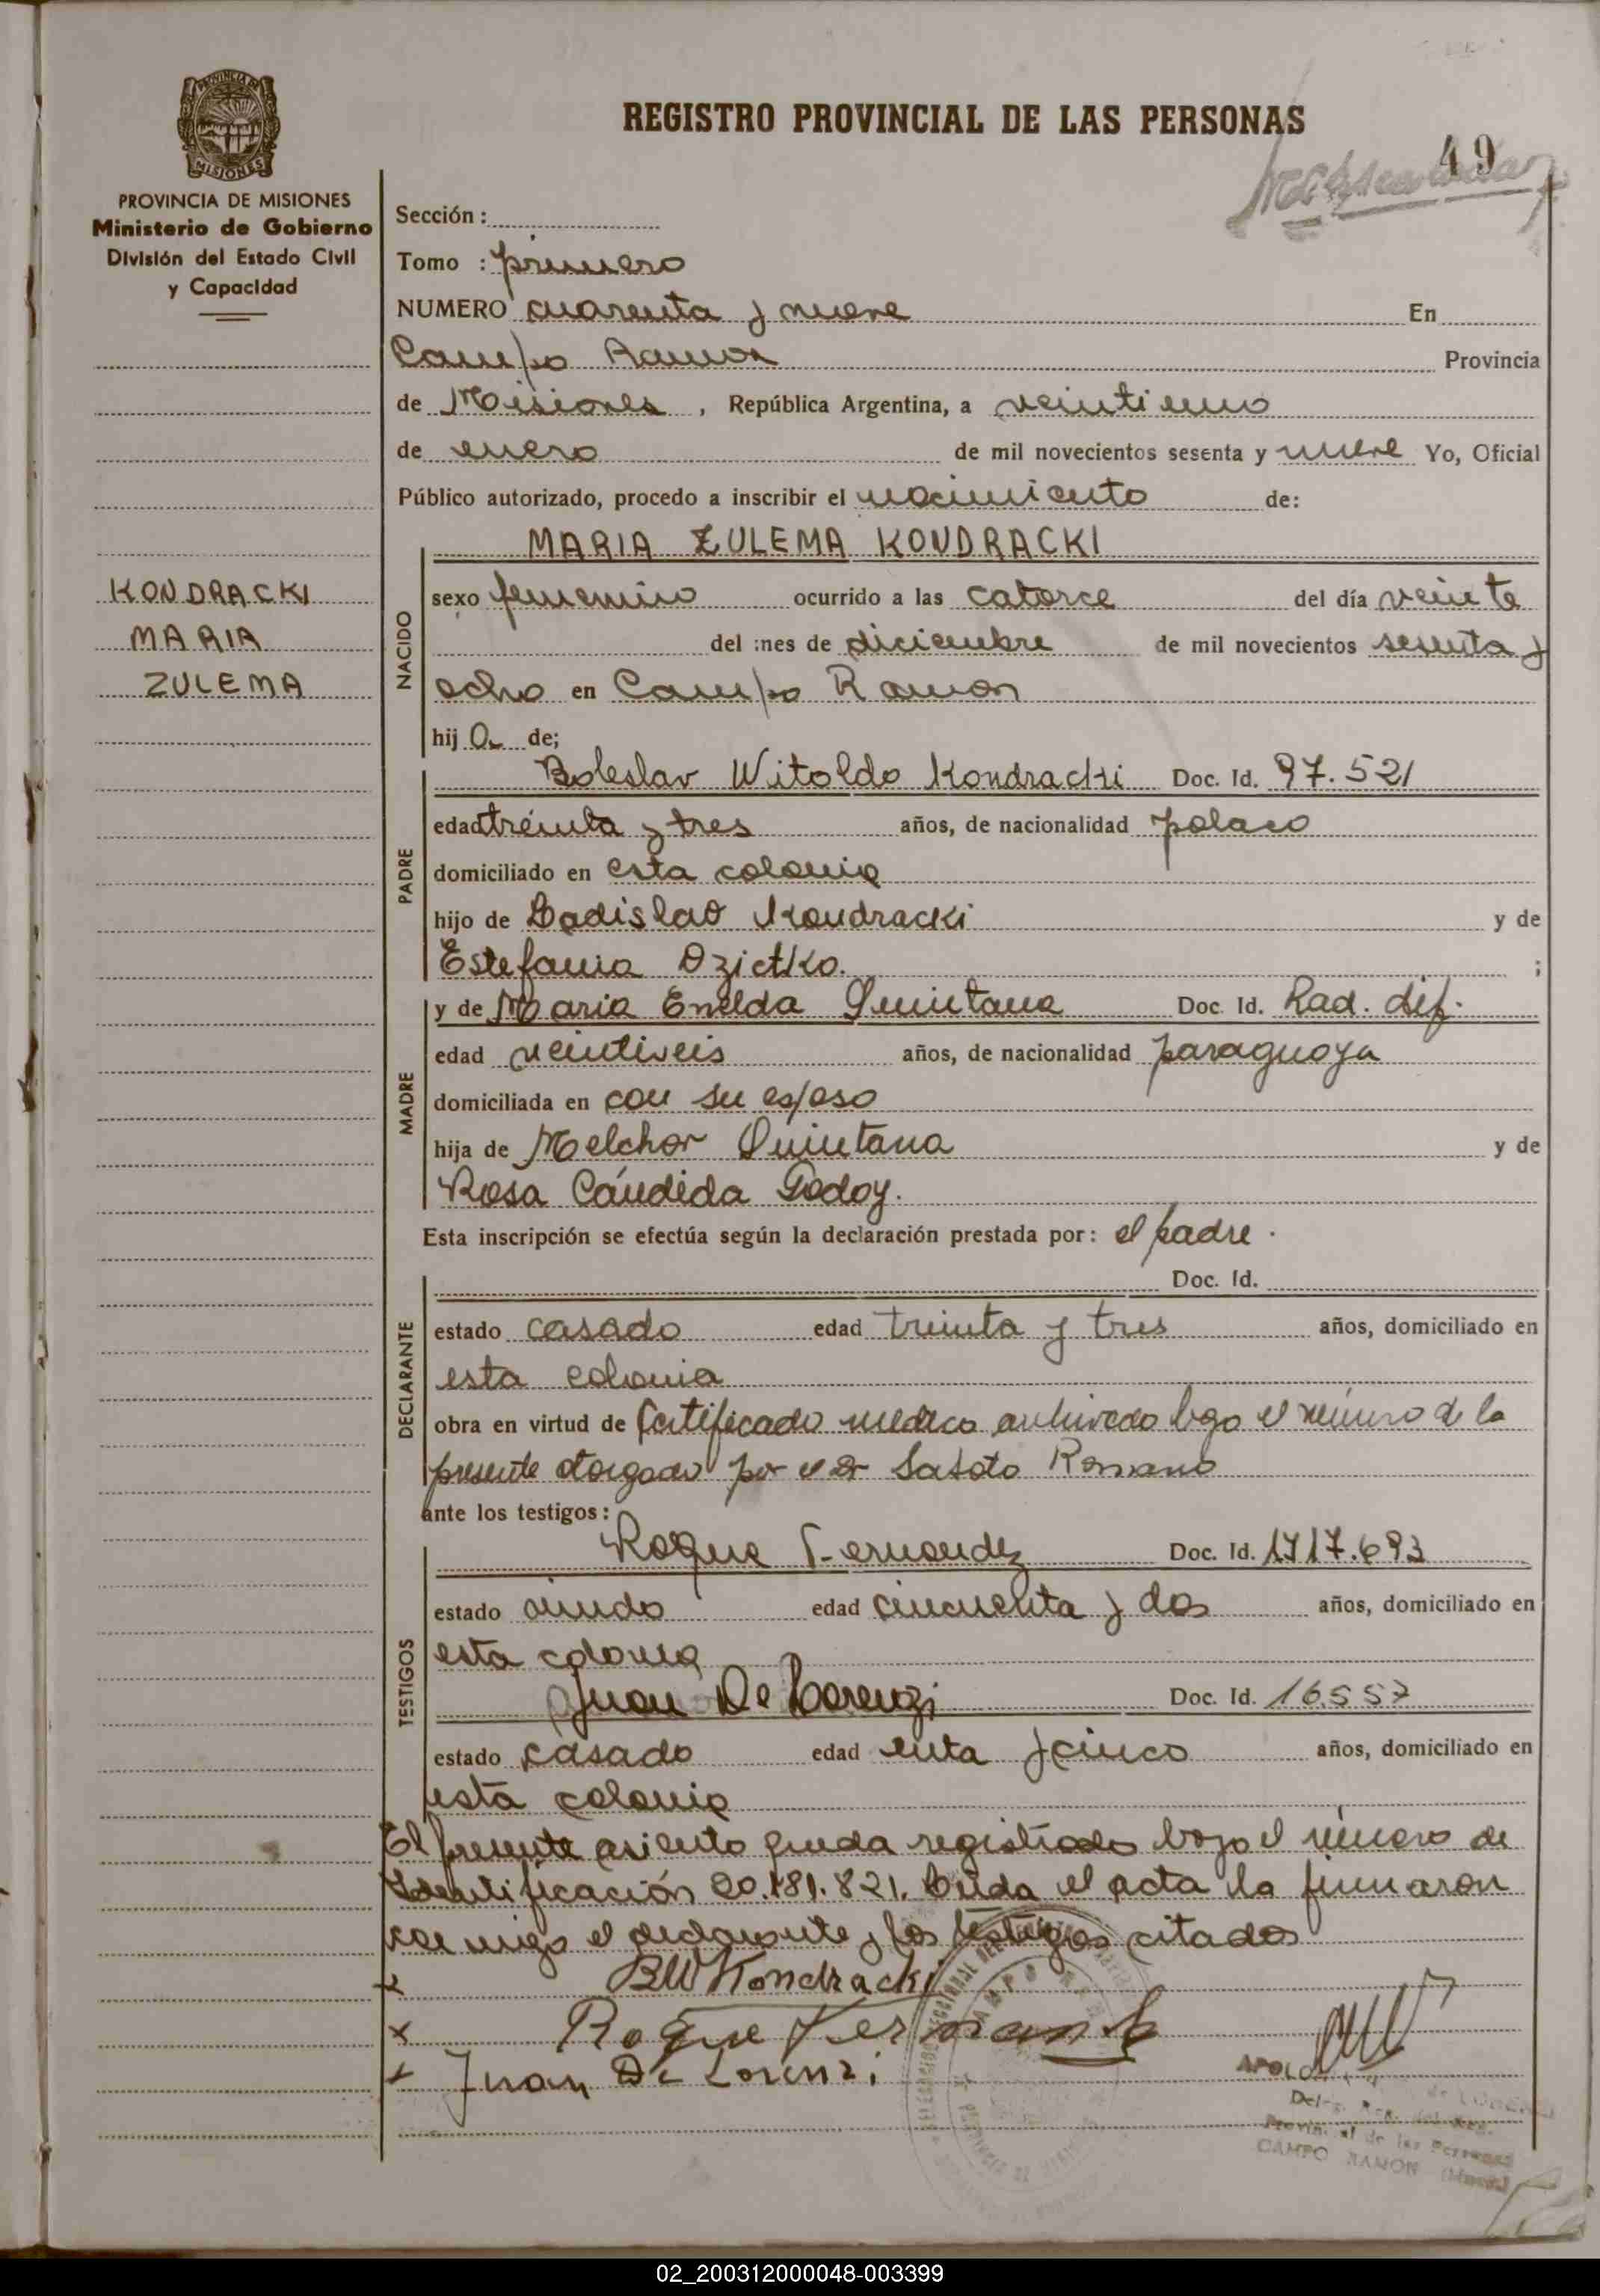 REGISTRO PROVINCIAL DE LAS PERSONAS
49
PROVINCIA DE
MISIONES
PROVINCIA DE MISIONES
Ministerio de Gobierno
División del Estado Civil
y Capacidad
Sección :
Tomo : primero
NUMERO cuarenta y nueve En
Campo Ramon Provincia
de Misiones , República Argentina, a veintiuno
de enero de mil novecientos sesenta y nueve Yo, Oficial
Público autorizado, procedo a inscribir el nacimiento de:
KONDRACKI
MARIA
ZULEMA
NACIDO
MARIA ZULEMA KONDRACKI
sexo femenino ocurrido a las catorce del día veinte
del mes de diciembre de mil novecientos sesenta y
ocho en Campo Ramon
hij a de;
PADRE
Boleslav Witoldo Kondracki Doc. Id. 97.521
edad treinta y tres años, de nacionalidad polaco
domiciliado en esta colonia
hijo de Ladislao Kondracki y de
Estefania Dzietko. ;
MADRE
y de Maria Enelda Quintana Doc. Id. Rad. dif.
edad veintiseis años, de nacionalidad paraguaya
domiciliada en con su esposo
hija de Melchor Quintana y de
Rosa Cándida Godoy.
Esta inscripción se efectúa según la declaración prestada por: el padre.
DECLARANTE
Doc. Id.
estado casado edad treinta y tres años, domiciliado en
esta colonia
obra en virtud de Certificado medico archivado bajo el número de la
presente otorgado por el Dr Romano
ante los testigos:
TESTIGOS
Roque Fernandez Doc. Id. 1717.693
estado viudo edad cincuenta y dos años, domiciliado en
esta colonia
Juan De Lorenzi Doc. Id. 16.557
estado casado edad enta y cinco años, domiciliado en
esta colonia
El presente asiento queda registrado bajo el número de
Identificación 20.181.821. Leída el acta la firmaron
con migo el declarante y los testigos citados
x BWKondracki
x Roque Fernandez
x Juan De Lorenzi
Provincial de las Personas
CAMPO RAMON
02_200312000048-003399